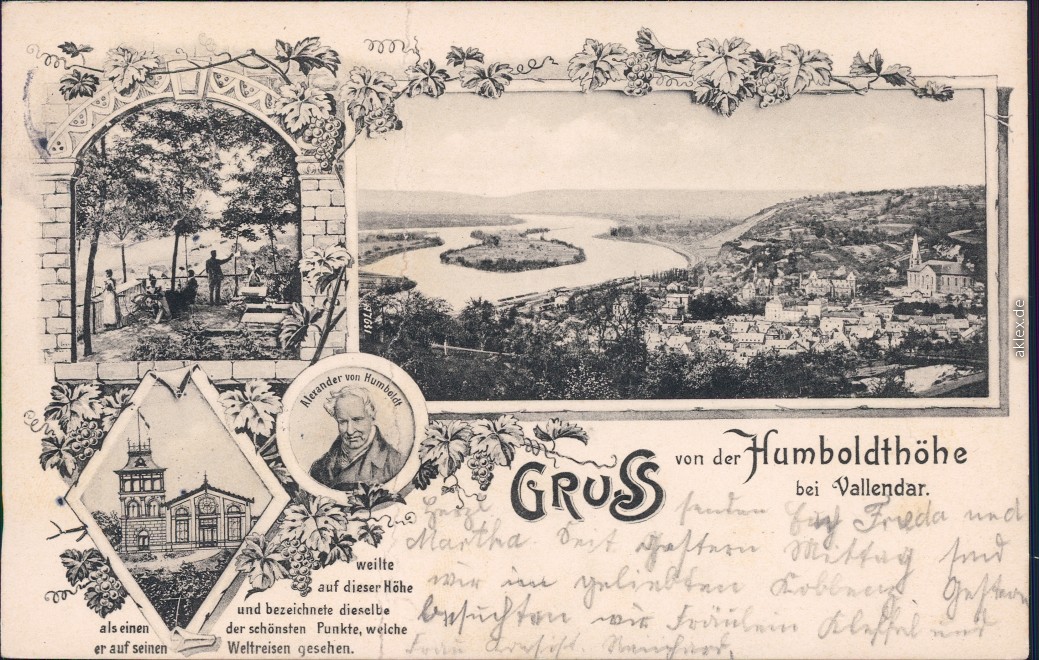 Alexander von Humboldt
19127
GRUSS von der Humboldthöhe
bei Vallendar.
weilte
auf dieser Höhe
und bezeichnete dieselbe
als einen der schönsten Punkte, welche
er auf seinen Weltreisen gesehen.
Herzl senden Euch Frieda und
Martha. Seit Gestern Mittag sind
wir im geliebten Koblenz. Gestern
besuchten wir Fräulein Kleffel und
Frau
aklex.de